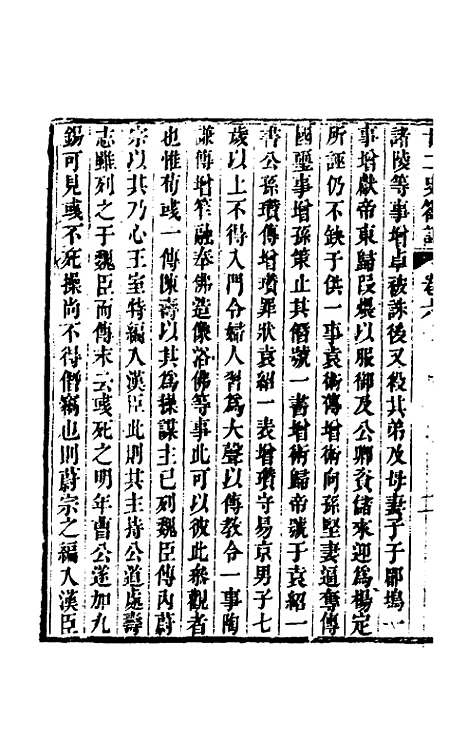 廿二史劄記 卷六
諸陵等事增卓被誅後又殺其弟及母妻子于郿塢一
事增獻帝東歸段煨以服御及公卿資儲來迎爲楊定
所誣仍不缺于供一事袁術傳增術向孫堅妻逼奪傳
國璽事增孫策止其僭號一書增術歸帝號于袁紹一
書公孫瓚傳增瓚罪狀袁紹一表增瓚守易京男子七
歲以上不得入門令婦人習爲大聲以傳教令一事陶
謙傳增笮融奉佛造像浴佛等事此可以彼此叅觀者
也惟荀彧一傳陳壽以其爲操謀主已列魏臣傳內蔚
宗以其乃心王室特編入漢臣此則其主持公道處壽
志雖列之于魏臣而傳末云彧死之明年曹公遂加九
錫可見彧不死操尚不得僭竊也則蔚宗之編入漢臣